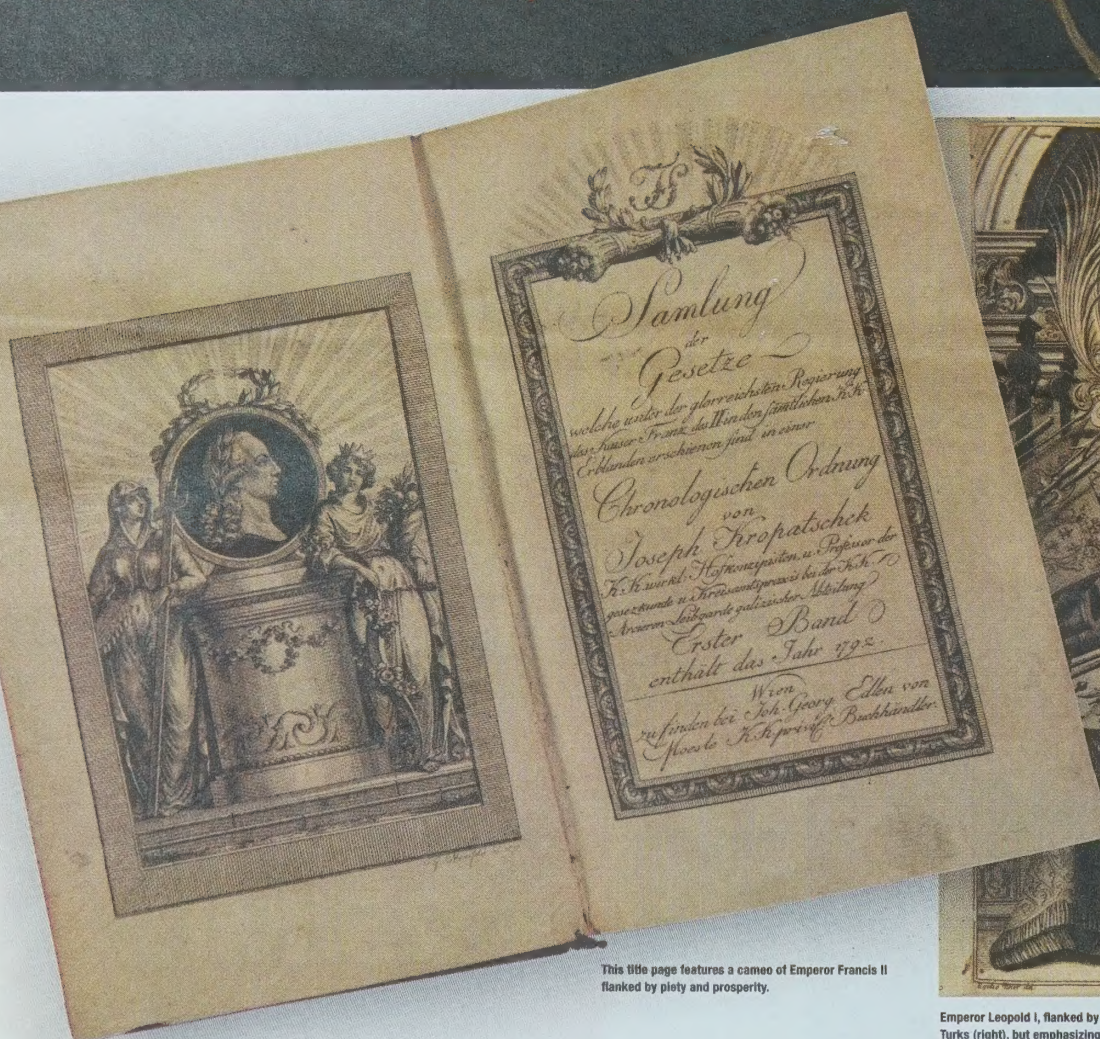 FII
Samlung
der
Gesetze
welche unter der glorreichsten Regierung
des Kaiser Franz des II in den sämtlichen K.K.
Erblanden erschienen sind in einer
Chronologischen Ordnung
von
Joseph Kropatschek
K.K. wirkl. Hofkonzipisten, u. Professor der
gesezkunde u. Kreisamtspraxis bei der K.K.
Arcieren Leibgarde galizischer Abteilung
Erster Band
enthält das Jahr 1792.
Wien
zu finden bei Joh. Georg Edlen von
Moesle K.K. privil. Buchhändler.
This title page features a cameo of Emperor Francis II
flanked by piety and prosperity.
Emperor Leopold I, flanked by
Turks (right), but emphasizing